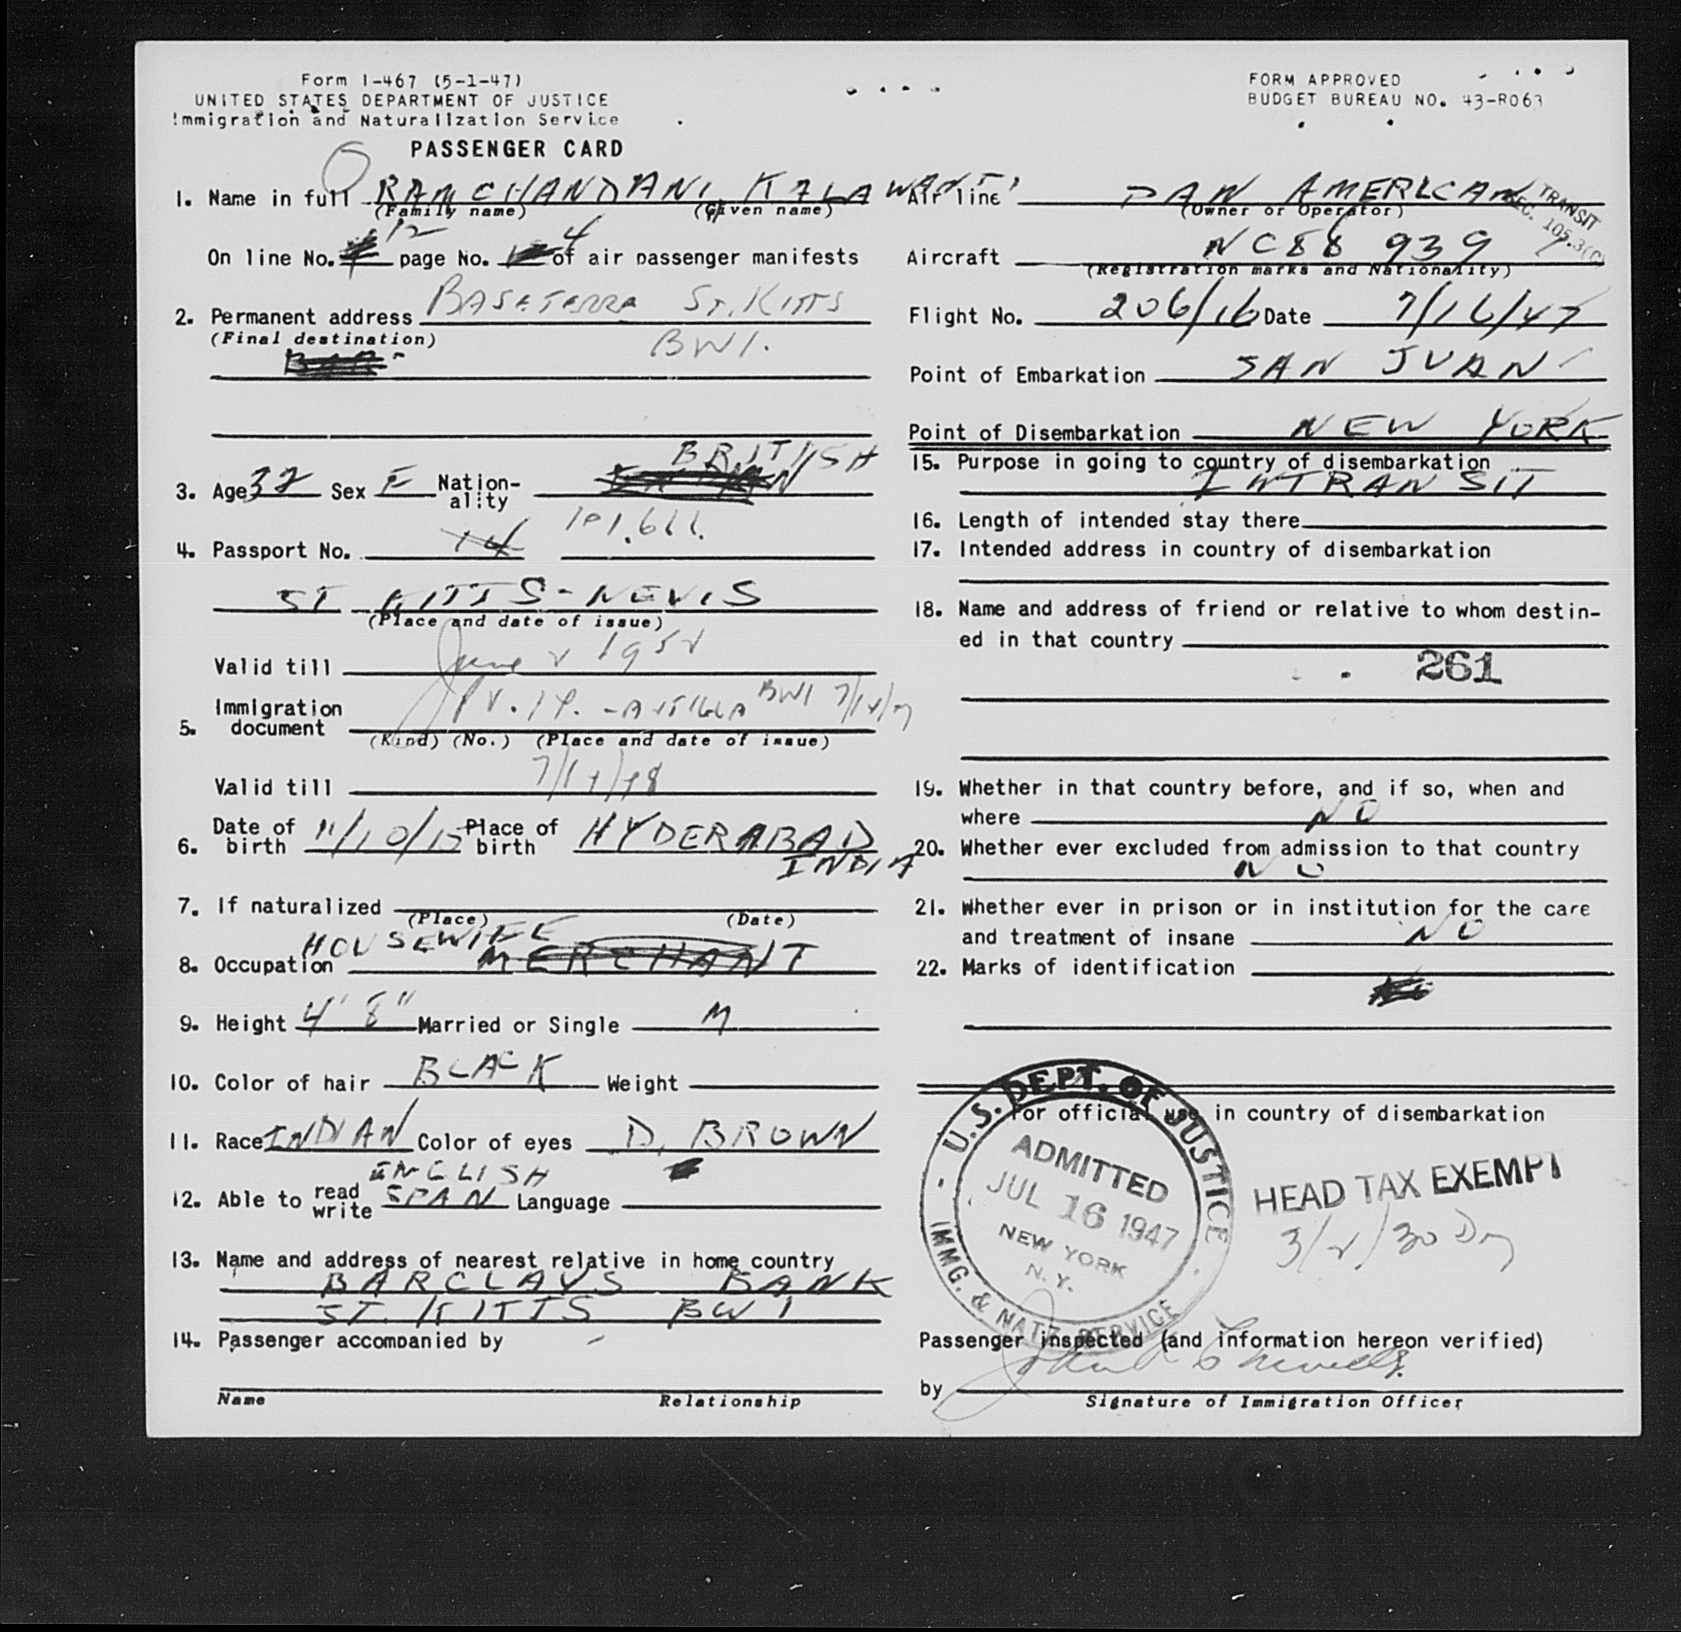 Form I-467 (5-1-47)
UNITED STATES DEPARTMENT OF JUSTICE
Immigration and Naturalization Service
PASSENGER CARD
FORM APPROVED
BUDGET BUREAU NO. 43-R063
1. Name in full RAMCHANDANI, KALAWANTI
(Family name) (Given name)
On line No. 12 page No. 4 of air passenger manifests
2. Permanent address BASETERRE ST. KITTS
(Final destination) BWI.
3. Age 32 Sex F Nationality BRITISH
4. Passport No. 14 101.611.
ST KITTS-NEVIS
(Place and date of issue)
Valid till June 2 1952
5. Immigration document BWI
(Kind) (No.) (Place and date of issue)
Valid till
6. Date of birth 11/10/15 Place of birth HYDERABAD
INDIA
7. If naturalized
(Place) (Date)
HOUSEWIFE
8. Occupation MERCHANT
9. Height 4' 8" Married or Single M
10. Color of hair BLACK Weight
11. Race INDIAN Color of eyes D. BROWN
ENGLISH
12. Able to read write SPAN Language
13. Name and address of nearest relative in home country
BARCLAYS BANK
ST. KITTS BWI
14. Passenger accompanied by -
Name Relationship
Air line PAN AMERICAN
(Owner or Operator)
TRANSIT
SEC. 105.3(c)
Aircraft NC88939
(Registration marks and Nationality)
Flight No. 206/16 Date 7/16/47
Point of Embarkation SAN JUAN
Point of Disembarkation NEW YORK
15. Purpose in going to country of disembarkation
INTRANSIT
16. Length of intended stay there
17. Intended address in country of disembarkation
18. Name and address of friend or relative to whom destin-
ed in that country
261
19. Whether in that country before, and if so, when and
where NO
20. Whether ever excluded from admission to that country
NO
21. Whether ever in prison or in institution for the care
and treatment of insane NO
22. Marks of identification
For official use in country of disembarkation
U.S. DEPT. OF JUSTICE
ADMITTED
JUL 16 1947
NEW YORK
N. Y.
IMMG. & NATZ. SERVICE
HEAD TAX EXEMPT
3/2/30 Dy
Passenger inspected (and information hereon verified)
by
Signature of Immigration Officer